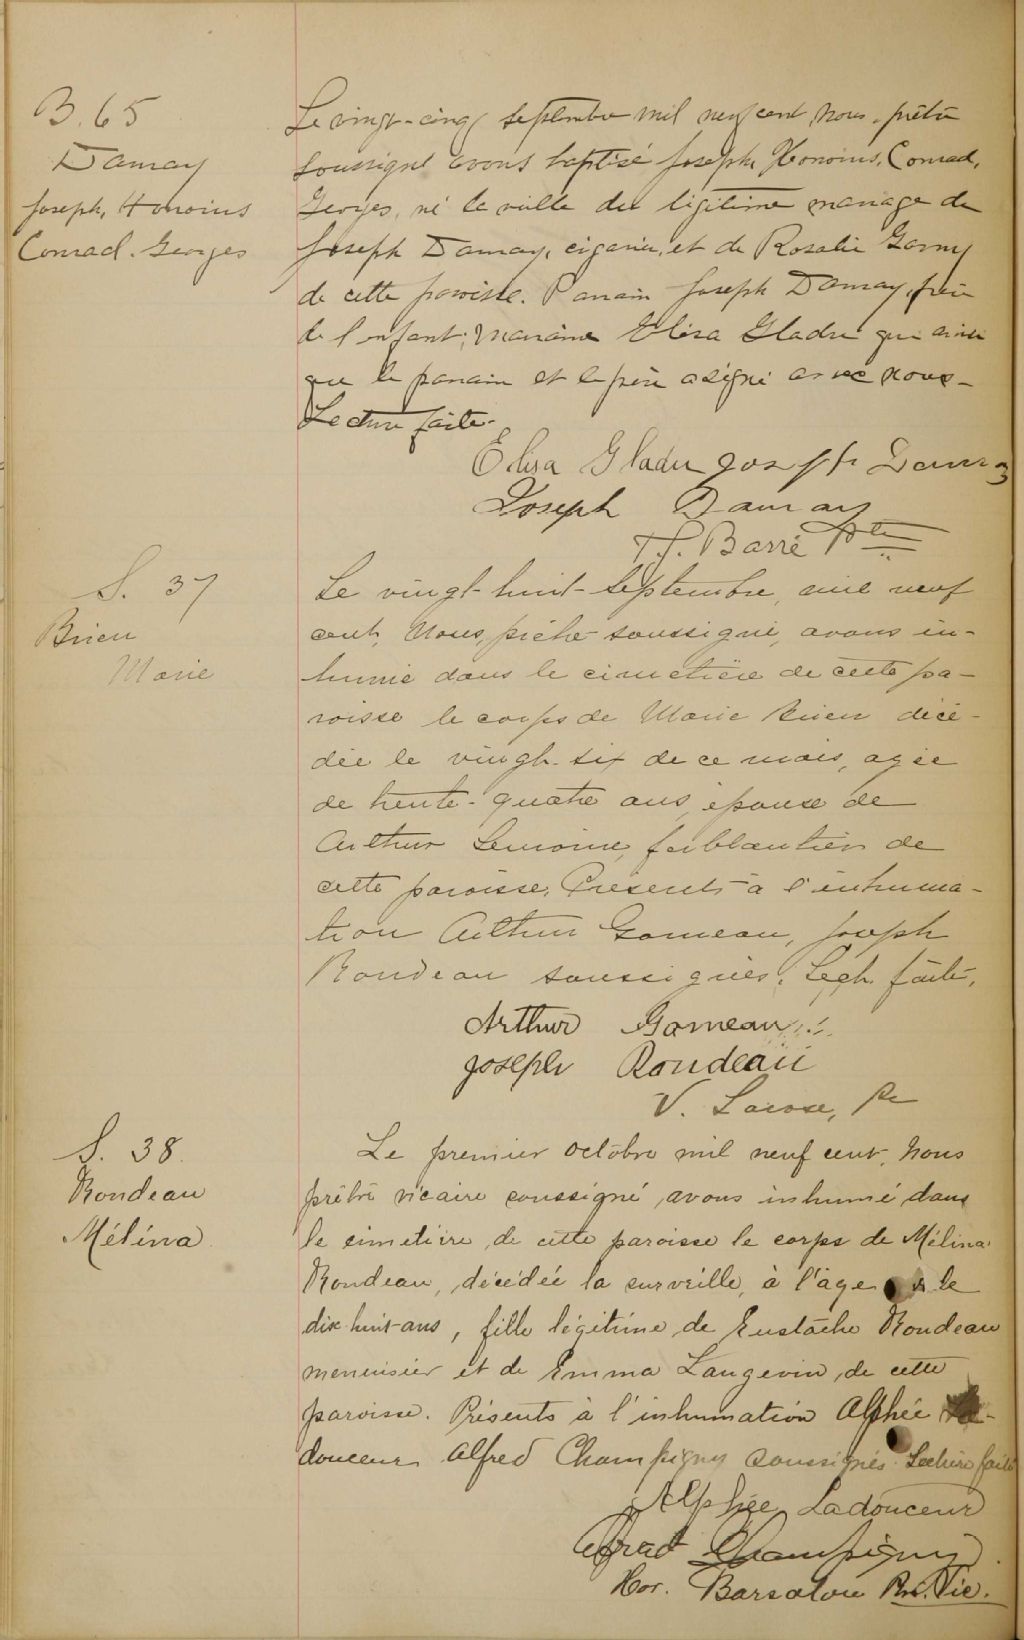 B. 65
Damay
Joseph, Honorius
Conrad. Georges
Le vingt-cinq septembre mil neuf cent nous, prêtre
soussigné avons baptisé Joseph, Honorius, Conrad,
Georges, né la veille du légitime mariage de
Joseph Damay, cigarier, et de Rosalie Gorny
de cette paroisse. Parrain Joseph Damay, frère
de l'enfant; marraine Eliza Gladu qui ainsi
que le parrain et le père a signé avec nous-
Lecture faite-
Elisa Gladu Joseph
Joseph Damay
T.J. Barré Ptre
S. 37
Brien
Marie
Le vingt-huit-septembre, mil neuf
cent, Nous, prêtre soussigné, avons in-
humé dans le cimetière de cette pa-
roisse le corps de Marie Brien décé-
dée le vingt-six de ce mois, agée
de trente-quatre ans, épouse de
Arthur Lemoine, ferblantier de
cette paroisse, Présents à l'inhuma-
tion Arthur Gomeau, Joseph
Rondeau soussignés. Lect. faite,
Arthur Gomeau
Joseph Rondeau
V. Larose, Pr
S. 38
Rondeau
Mélina
Le premier octobre mil neuf cent, Nous
prêtre vicaire soussigné, avons inhumé dans
le cimetière de cette paroisse le corps de Mélina
Rondeau, décédée la surveille, à l'âge de
dix-huit-ans, fille légitime de Eustache Rondeau
menuisier et de Emma Langevin, de cette
paroisse. Présents à l'inhumation Alphée La-
douceur Alfred Champigny soussignés. Lecture faite
Alphée Ladouceur
Alfred Champigny
Hor. Barsalou Pre. Vic.